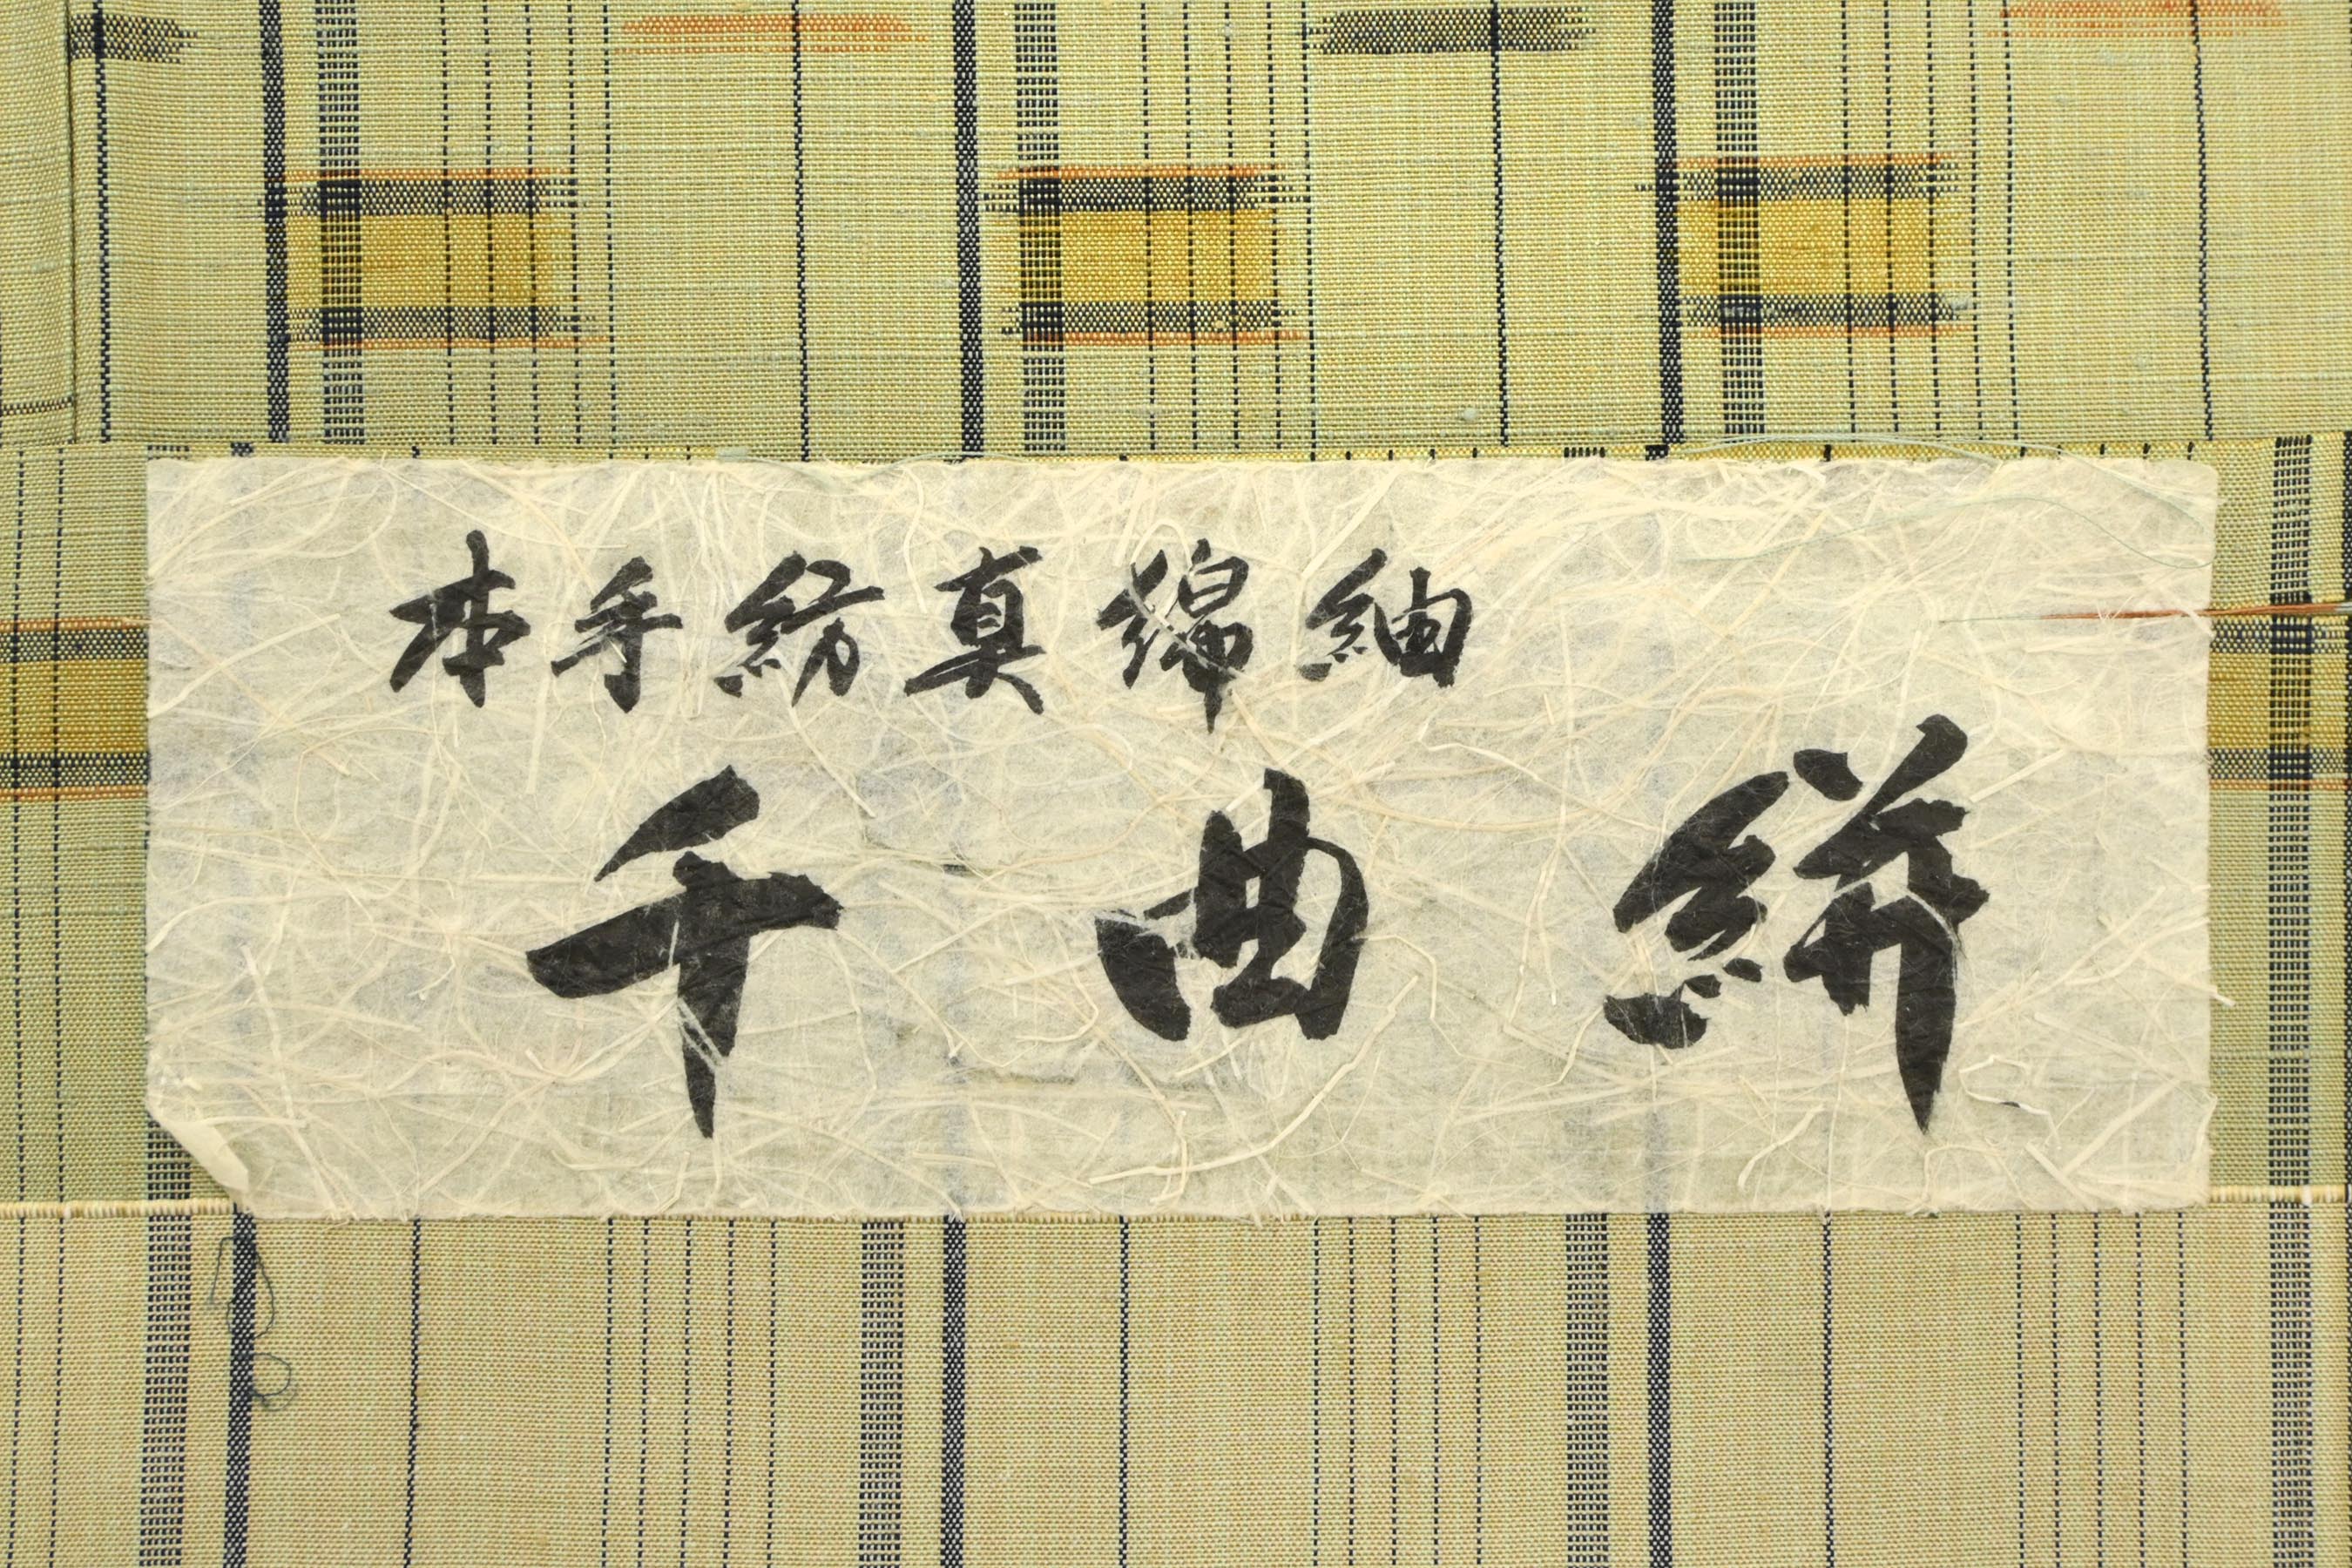 本手紡真綿紬
千曲絣